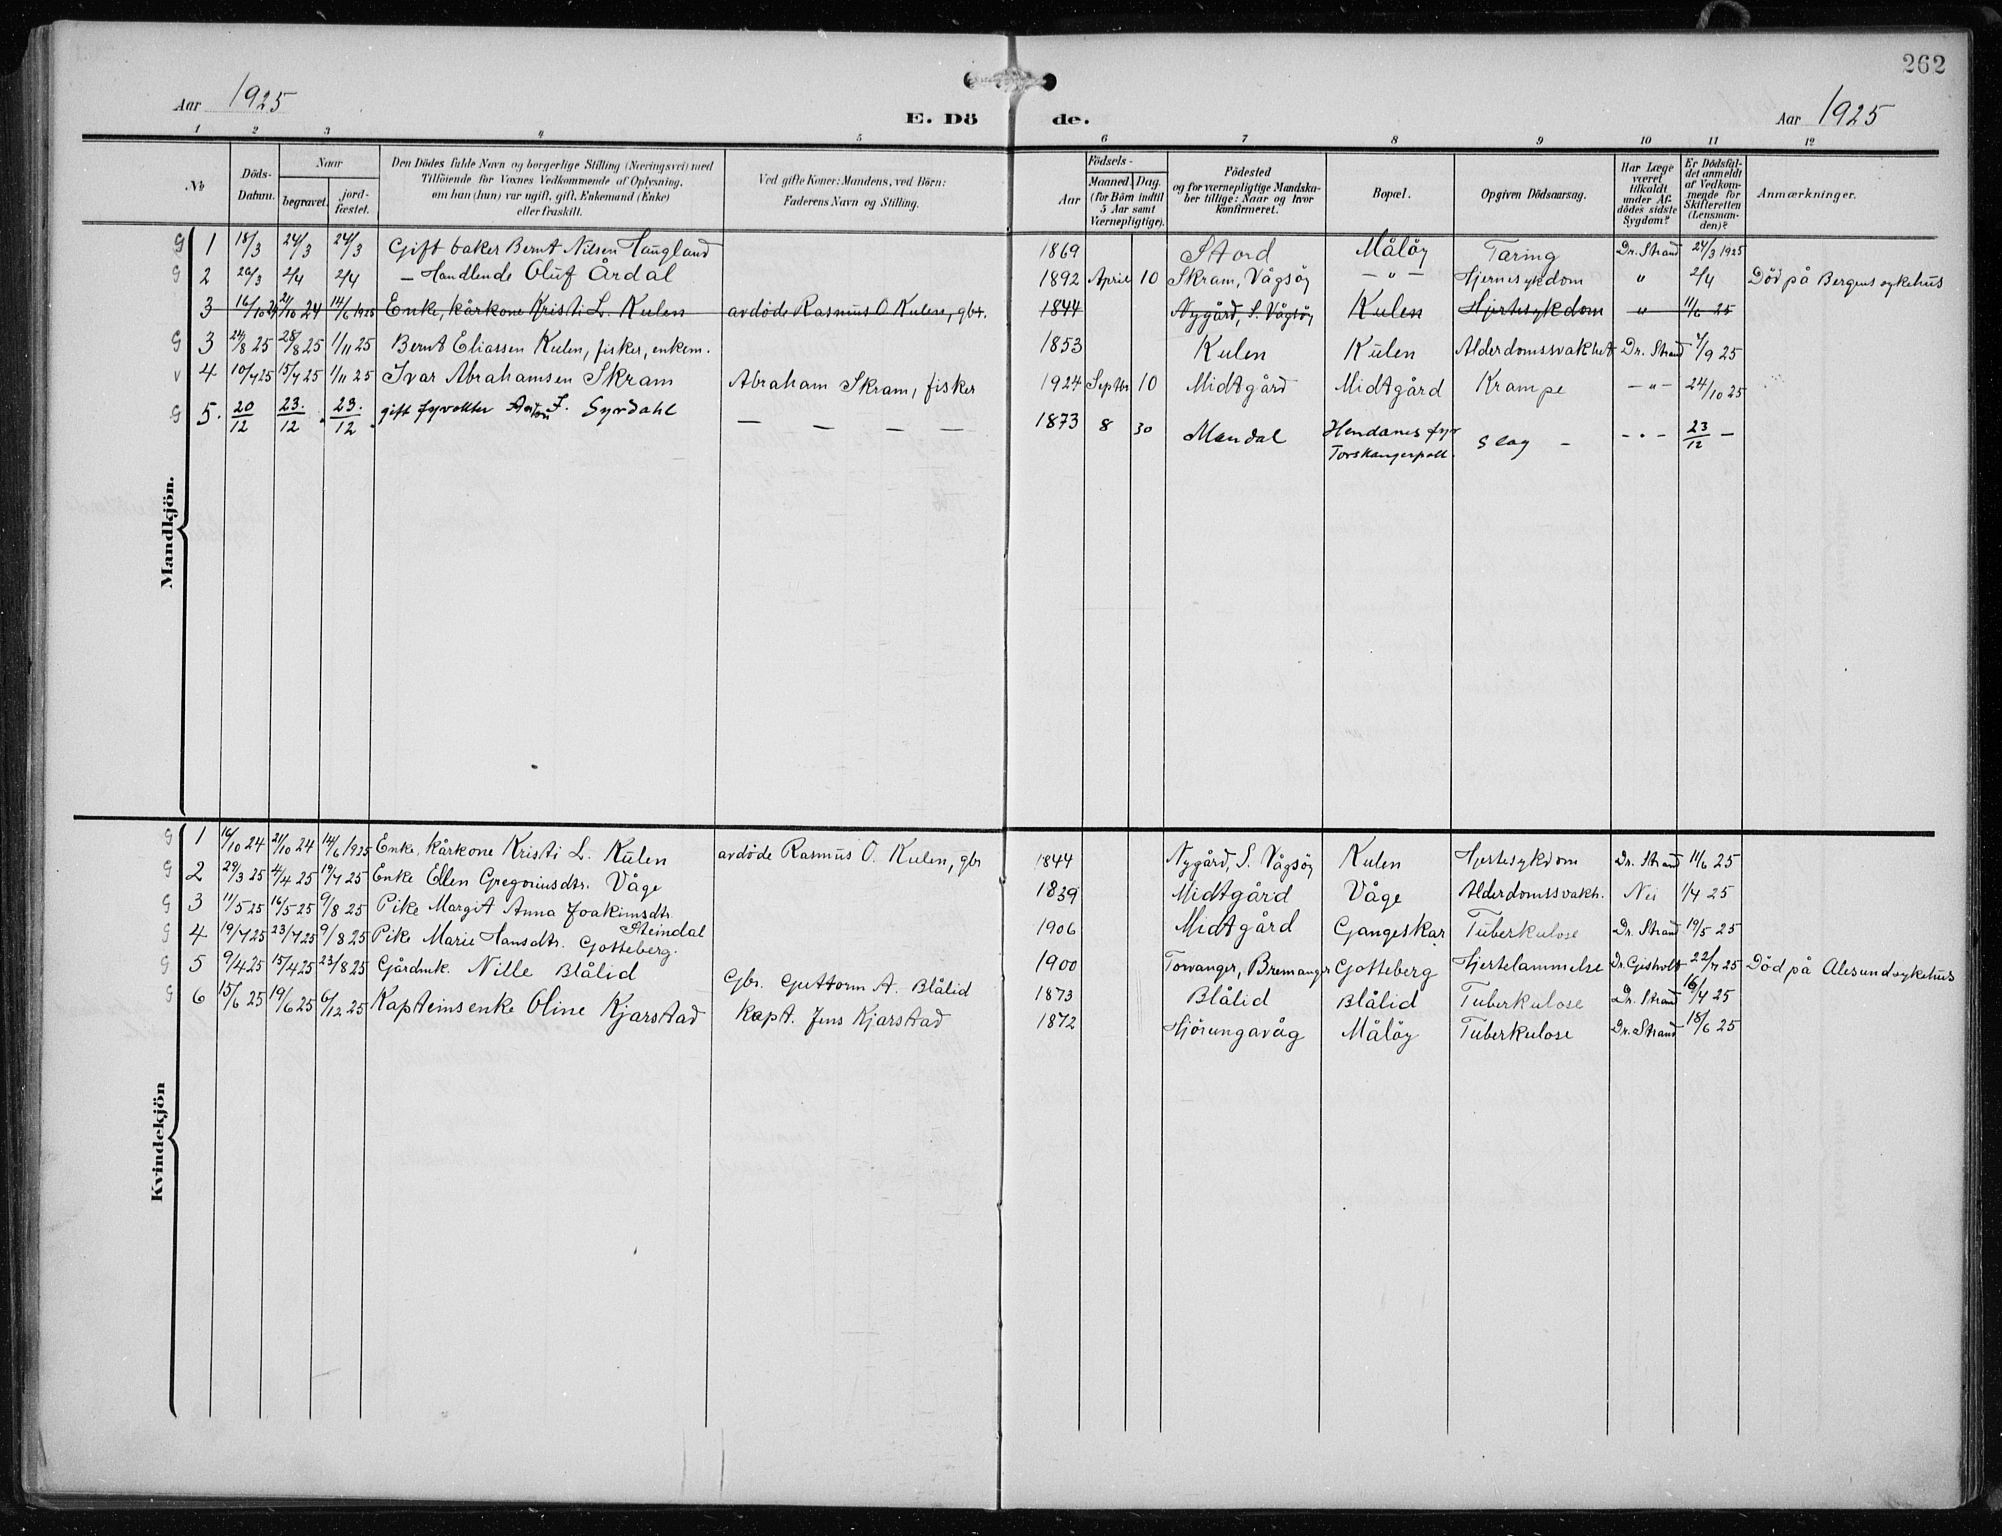 262
Aar 1925
E. Dö de.
Aar 1925
1 2 3 4 5 6 7 8 9 10 11 12
No
Döds-Datum.
Naar
begravet.
jord-fæstet.
Den Dödes fulde Navn og borgerlige Stilling (Næringsvei) med
Tilföiende for Voxnes Vedkommende af Oplysning,
om han (hun) var ugift, gift, Enkemand (Enke)
eller fraskilt.
Ved gifte Koner: Mandens, ved Börn:
Faderens Navn og Stilling.
Födsels-
Aar
Maaned. Dag.
(for Börn indtil
5 Aar samt
Værnepligtige).
Födested
og for værnepligtige Mandska-
ber tillige: Naar og hvor
konfirmeret.
Bopæl.
Opgiven Dödsaarsag.
Har Læge
været
tilkaldt
under Af-
dödes sidste
Sygdom?
Er Dödsfal-
det anmeldt
af Vedkom-
mende for
Skifteretten
(Lensman-
den)?
Anmærkninger.
Mandkjön.
G 1 18/3 24/3 24/3 Gift baker Bernt Nilsen Haugland 1869 Stord Måløy Tæring Dr. Strand 24/3 1925
G 2 26/3 2/4 2/4 — Handlende Oluf Årdal 1892 April 10 Skram, Vågsøy — " — Hjernesykdom " 2/4 Död på Bergens sykehus
3 16/10 24 21/10 24 14/6 1925 Enke, kårkone Kristi L. Kulen avdøde Rasmus O Kulen, gbr. 1844 Nygård, S. Vågsøy Kulen Hjertesykdom " 11/6 25
G 3 24/8 25 28/8 25 1/11 25 Bernt Eliassen Kulen, fisker, enkem. 1853 Kulen Kulen Alderdomssvakhet Dr. Strand 4/9 25
v 4 10/7 25 15/7 25 1/11 25 Ivar Abrahamsen Skram Abraham Skram, fisker 1924 Septbr 10 Midtgård Midtgård Krampe — " — 24/10 25
G 5. 20/12 23/12 23/12 gift fyrvokter Anton F. Syrdahl — — — — 1873 8 30 Mandal Hendanes fyr Slag — - " - 23/12 —
Torskangerpoll.
Kvindekjön
G 1 16/10 24 21/10 24 14/6 1925 Enke, kårkone Kristi L. Kulen avdøde Rasmus O. Kulen, gbr 1844 Nygård, S. Vågsøy Kulen Hjertesykdom Dr. Strand 11/6 25
G 2 29/3 25 4/4 25 19/7 25 Enke Ellen Gregoriusdtr. Våge 1839 Midtgård Våge Alderdomssvakh. Nei 1/4 25
G 3 11/5 25 16/5 25 9/8 25 Pike Margit Anna Joakimsdtr.
Steindal 1906 Midtgård Gangeskar Tuberkulose Dr. Strand 19/5 25
G 4 19/7 25 23/7 25 9/8 25 Pike Marie Hansdtr. Gotteberg. 1900 Torvanger, Bremanger Gotteberg Hjertelammelse Dr. Gjsholt 22/7 25 Död på Alesund sykehus
G 5 9/4 25 15/4 25 23/8 25 Gårdmk. Nille Blålid Gbr. Guttorm A. Blålid 1873 Blålid Blålid Tuberkulose Dr. Strand 16/4 25
G 6 15/6 25 19/6 25 6/12 25 Kapteinsenke Oline Kjarstad Kapt. Jens Kjarstad 1872 Hjörungavåg Måløy Tuberkulose Dr. Strand 18/6 25